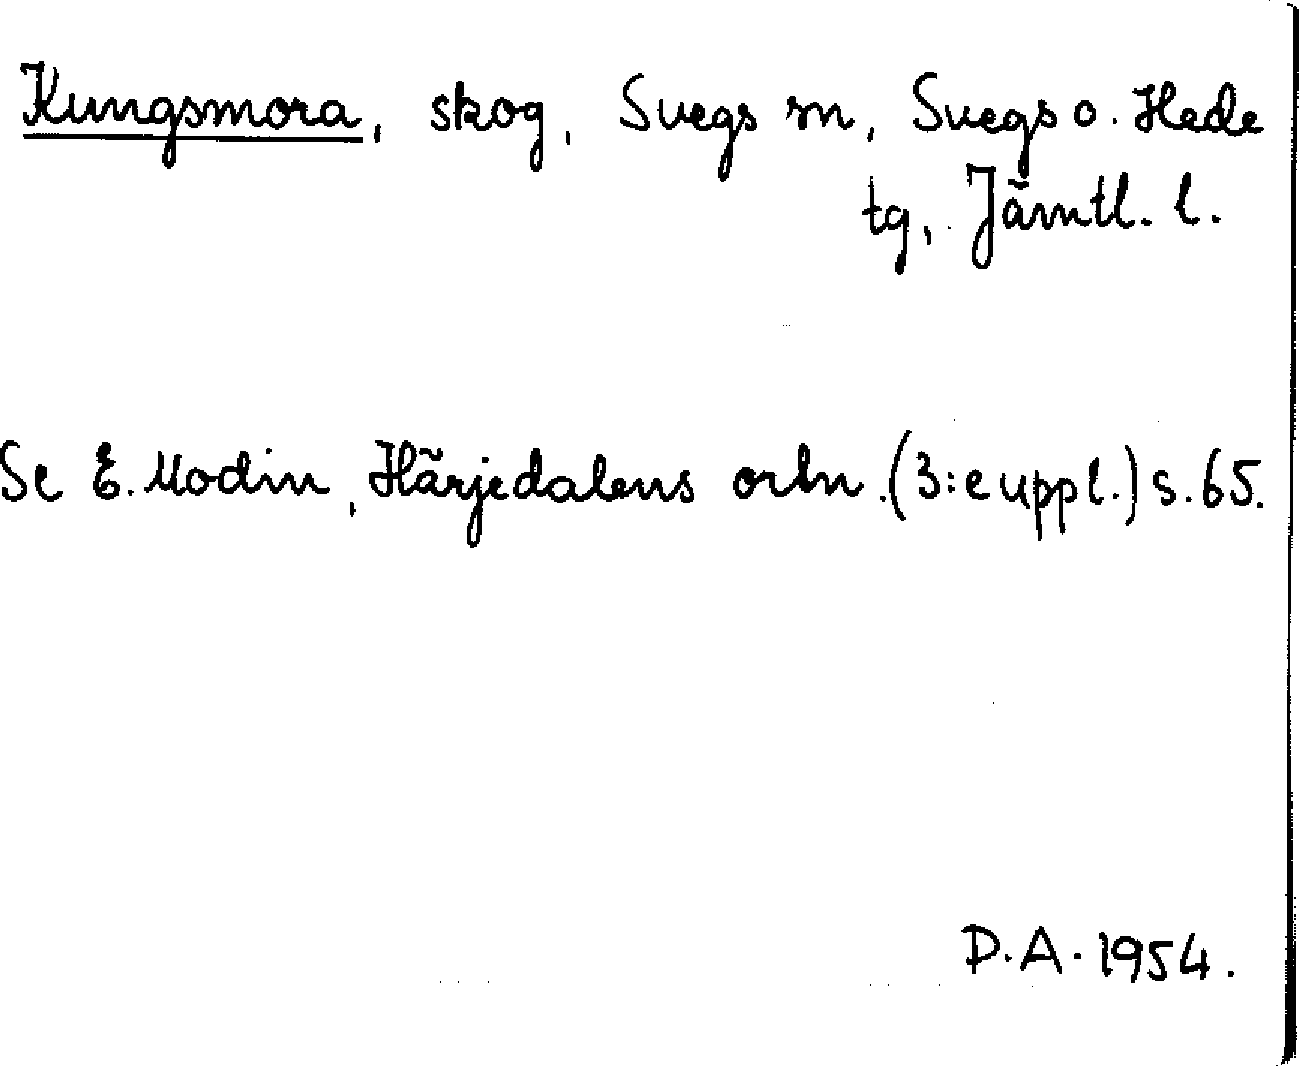 Kungsmora, skog, Svegs sn, Svegs o. Hede
tg, Jämtl. l.
Se E. Modin, Härjedalens ortn. (3:e uppl.) s. 65.
D.A. 1954.